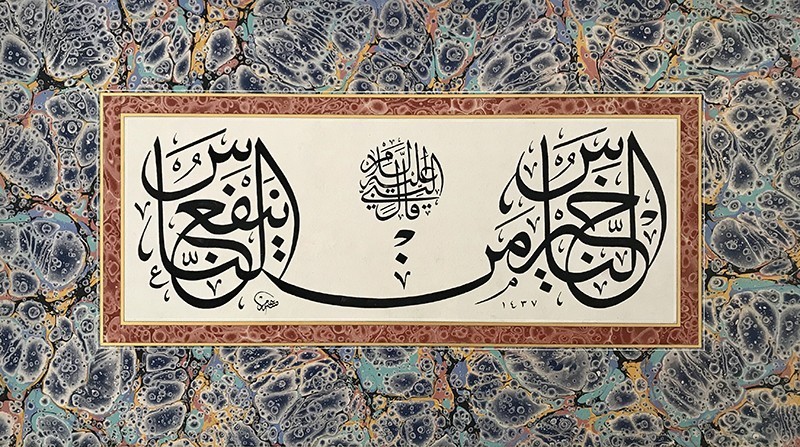 قال النبي عليه السلام
خير الناس من ينفع الناس
١٤٣٧